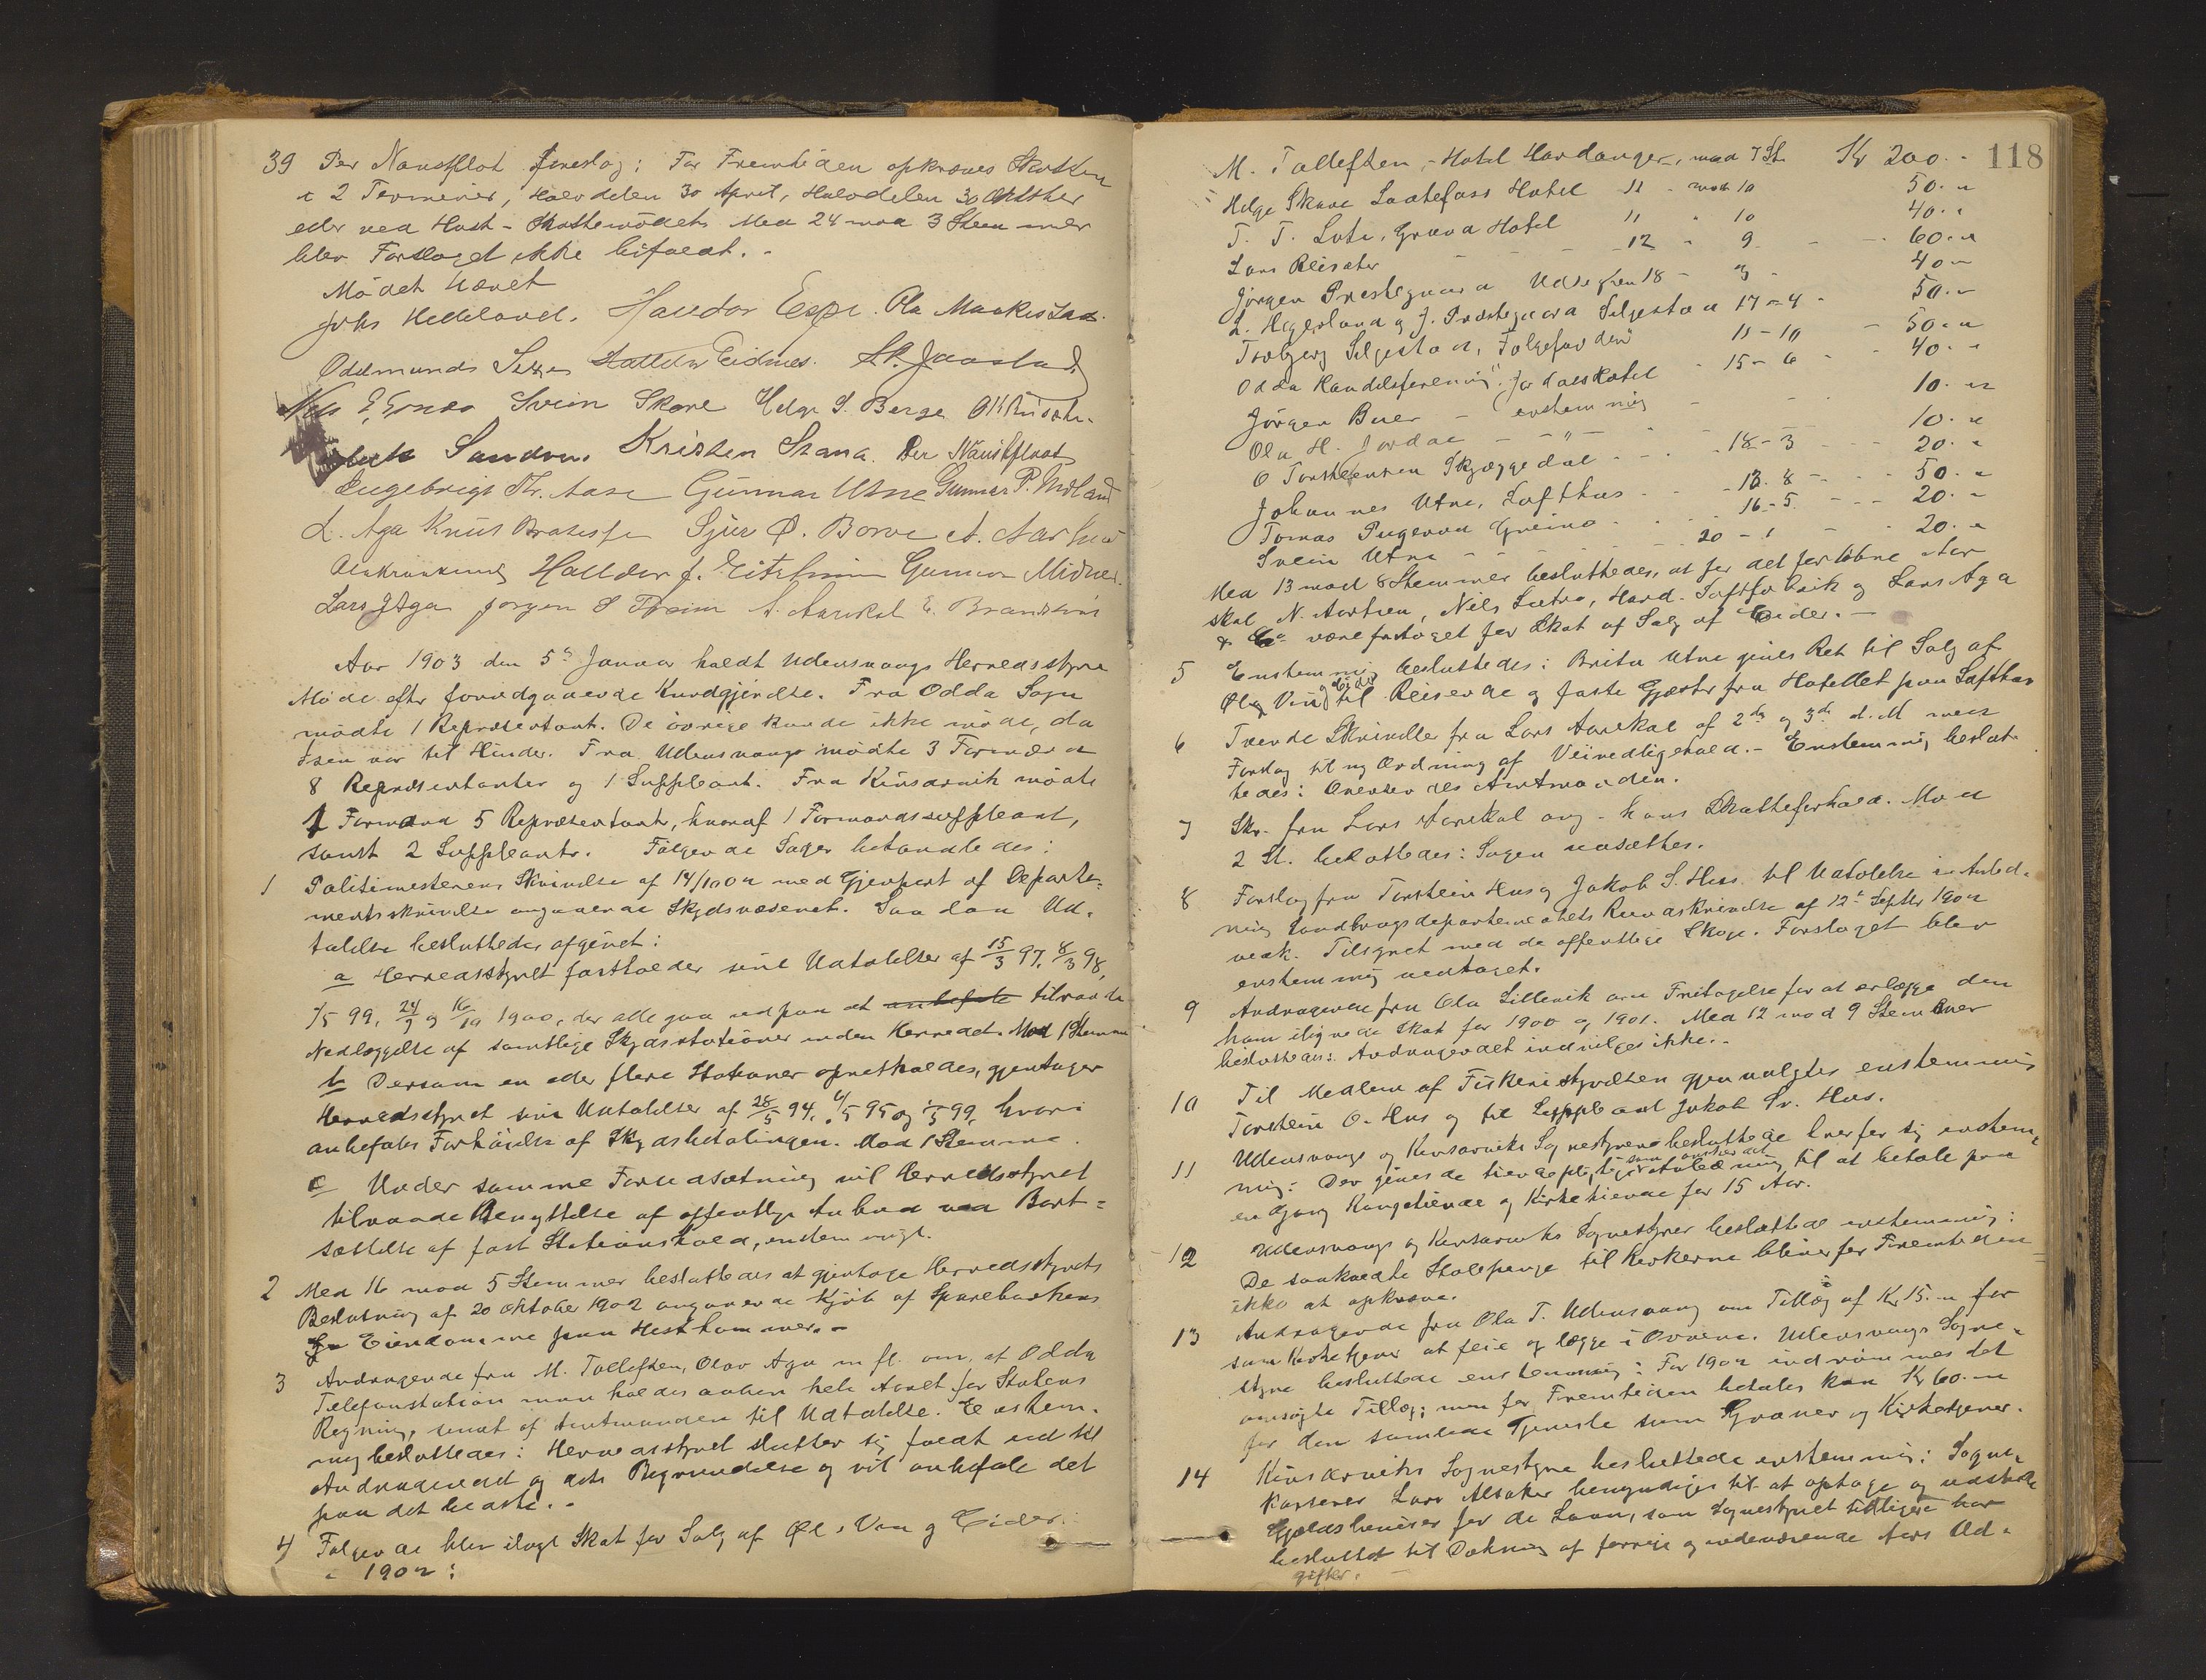 39 Per Naustflot foreslog: For Fremtiden opkræves Skatten
i 2 Terminer, Halvdelen 30 April, Halvdelen 30 Oktober
eller ved Høst-Skattemødet. Med 24 mod 3 Stemmer
blev Forslaget ikke bifaldt.
Mødet hævet
Johs Hedeland. Haldor Espe. Ola Maakestad.
Oddmund Halldor Eidnes. L. Jaastad
Nils Svein Skare Helge S. Berge
Sandven Kristen Skaara. Per Naustflaat
Engebrigt Th. Aase Gunnar Utne Gunnar P. Midland
L. Aga Knut Sjur O. Borve A. Aarhus
Halldor J. Eitrheim Gunnar Midnes.
Lars J Aga Jørgen S Freim A. Aarekol E. Brandstveit
Aar 1903 den 5te Januar holdt Udensvangs Herredsstyre
Møde efter forudgaaende Kundgjørelse. Fra Odda Sogn
mødte 1 Repræsentant. De øvrige kunde ikke møde, da
Isen var til Hinder. Fra Udensvangs mødte 3 Formænd
8 Repræsentanter og 1 Suppleant. Fra Kinsarvik mødte
1 Formand 5 Repræsentanter, hvoraf 1 Formandssuppleant,
samt 2 Suppleanter. Følgende Sager behandledes:
1 Politimesterens Skrivelse af 14/10 02 med Gjenpart af Departe-
mentsskrivelse angaaende Skydsvæsenet. Saadan Ud-
talelse besluttedes afgivet:
a Herredsstyret fastholder sine Udtalelser af 15/3 97, 8/3 98,
/5 99, 24/9 og 16/10 1900, der alle gaa ud paa at anbefale tilraade
Nedlæggelse af samtlige Skydsstationer inden Herredet. Mod 1 Stemme
b Dersom en eller flere Stationer opretholdes, gjentager
Herredsstyret sine Udtalelser af 28/5 94, 4/5 95 og /5 99, hvori
anbefales Forhøielse af Skydsbetalingen. Mod 1 Stemme.
c Under samme Forudsætning vil Herredsstyret
tilraade Benyttelse af offentlige Anbud ved Bort-
sættelse af fast Stationshold, enstemmigt.
2 Med 16 mod 5 Stemmer besluttedes at gjentage Herredsstyrets
Beslutning af 20 Oktober 1902 angaaende Kjøb af Sparebankens
Eiendomme paa Hesthammer.
3 Andragende fra M. Tollefsen, Olav Aga m fl. om, at Odda
Telefonstation maa holdes aaben hele Aaret for Statens
Regning, sendt af Amtmanden til Udtalelse. Enstem-
mig besluttedes: Herredsstyret slutter sig fuldt ud til
Andragendet og dets Begrundelse og vil anbefale det
paa det bedste.
4 Følgende blev ilagt Skat for Salg af Øl, Vin og Cider
i 1902:
118
M. Tollefsen, - Hotel Hardanger, mod 7 St. Kr 200.-
Helge Skare Laatefoss Hotel 11 - mod 10 50. "
T. T. Lote, Grand Hotel 11 " 10 40. "
Lars Reisæter - - 12 - 9 - 60. "
Jørgen Prestegaard Udsigten 18 - 3 - 40 "
L. Hegerland og J. Præstegaard Seljestad 17 - 4 - 50. "
Torbjørg Seljestad, "Folgefonden" 11 - 10 - 50. "
Odda Handelsforening. Jordalshotel - 15 - 6 - 40. "
Jørgen Buer - enstemmig - 10. "
Ola H. Jordal - - " - 10. "
O Torsteinsen Skjæggedal - - 18 - 3 - 20. "
Johannes Utne, Lofthus - - 13. 8 - 50. "
Tomas Pugerud Greino - 16 - 5 - 20. "
Svein Utne - - 20 - 1 - 20. "
Med 13 mod 8 Stemmer besluttedes, at for det forløbne Aar
skal N. Aartun, Nils Sætre, Hard. Saftfabrik og Lars Aga
& Co være fritaget for Skat af Salg af Cider.
5 Enstemmig besluttedes: Brita Utne gives Ret til Salg af
Øl, Vin og Cider til Reisende og faste Gjæster fra Hotellet paa Lofthus
6 Tvende Skrivelser fra Lars Aarekol af 2den og 3die d. M med
Forslag til ny Ordning af Veivedligehold. - Enstemmig beslut-
tedes: Oversendes Amtmanden.
7 Skr. fra Lars Aarekol ang. hans Skatteforhold. Mod
2 St. besluttedes: Sagen udsættes.
8 Forslag fra Torstein Hus og Jakob S. Hus til Udtalelse i Anled-
ning Landbrugsdepartementets Rundskrivelse af 12te Septbr 1902
vedk. Tilsynet med de offentlige Skoge. Forslaget blev
enstemmig vedtaget.
9 Andragende fra Ola Lillevik om Fritagelse for at erlægge den
ham ilignede Skat for 1900 og 1901. Med 12 mod 9 Stemmer
besluttedes: Andragendet indvilges ikke.
10 Til Medlem af Fiskeristyrelsen gjenvalgtes enstemmig
Torstein O. Hus og til Suppleant Jakob Sv. Hus.
11 Udensvangs og Kinsarviks Sognestyrer besluttede hver for sig enstem-
mig: Der gives de tiendepligtige, som ønsker det, Anledning til at betale paa
en Gang Kongetiende og Kirketiende for 15 Aar.
12 Udensvangs og Kinsarviks Sognestyrer besluttede enstemmig:
De saakaldte Stolepenge til Kirkerne bliver for Fremtiden
ikke at opkræve.
13 Andragende fra Ola T. Udensvang om Tillæg af Kr 15. " for
som Kirketjener at feie og lægge i Ovnene. Udensvangs Sogne-
styre besluttede enstemmig: For 1902 indrømmes det
ansøgte Tillæg; men for Fremtiden betales kun Kr 60. "
for den samlede Tjeneste som Graver og Kirketjener.
14 Kinsarviks Sognestyre besluttede enstemmig: Sogne-
kasserer Lars Alsaker bemyndiges til at optage og udstede
Gjældsbeviser for de Laan, som Sognestyret tidligere har
besluttet til Dækning af forrige og indeværende Aars Ud-
gifter.